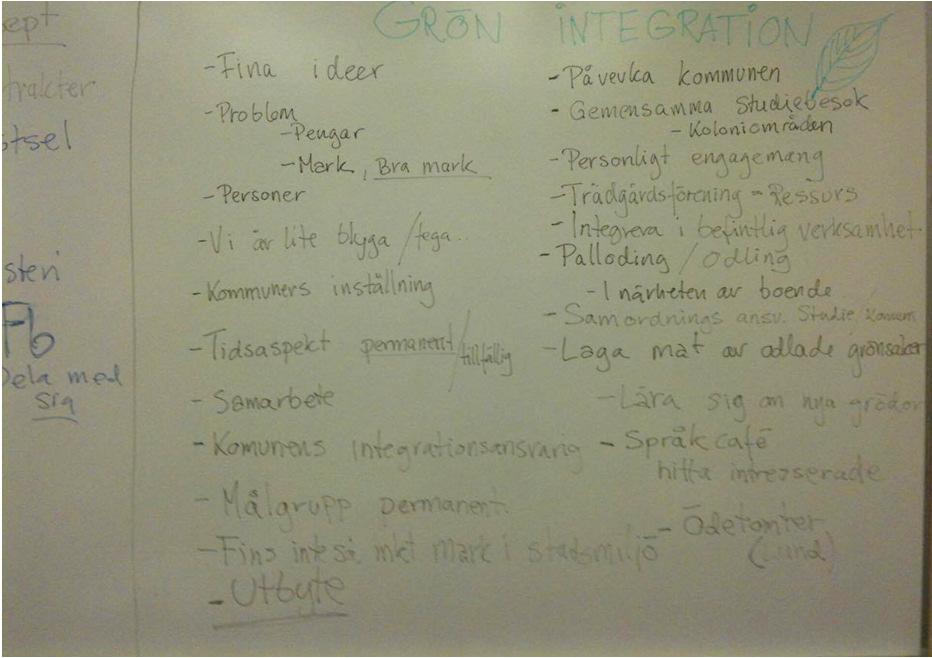 ept
trakter
tsel
steri
Fb
Dela med
sig
GRÖN INTEGRATION
- Fina ideer
- Problem
- Pengar
- Mark, Bra mark
- Personer
- Vi är lite blyga / fega..
- Kommuners inställning
- Tidsaspekt permanent / tillfällig
- Samarbete
- Komunens integrationsansvarig
- Målgrupp permanent
- Fins inte så mkt mark i stadsmiljö
- Utbyte
- Påverka kommunen
- Gemensamma Studiebesök
- Koloniområden
- Personligt engagemang
- Trädgårdsförening = Ressurs
- Integrera i befintlig verksamhet.
- Palloding / odling
- I närheten av boende
- Samordnings ansv. Studie,
- Laga mat av odlade grönsaker
- Lära sig om nya grödor
- Språkcafé
hitta intresserade
- Ödetomter
(Lund)